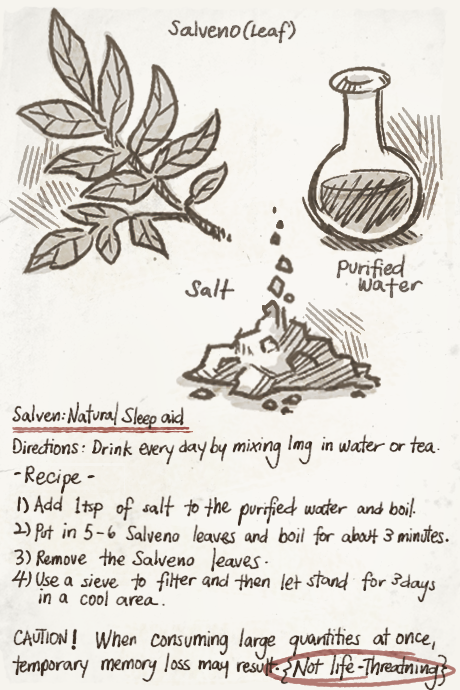 Salveno (Leaf)
Purified
Water
Salt
Salven: Natural Sleep aid
Directions: Drink every day by mixing 1mg in water or tea.
- Recipe -
1) Add 1tsp of salt to the purified water and boil.
2) Put in 5-6 Salveno leaves and boil for about 3 minutes.
3) Remove the Salveno leaves.
4) Use a sieve to filter and then let stand for 3days
in a cool area.
CAUTION! When consuming large quantities at once,
temporary memory loss may result. {Not life-Threatning}